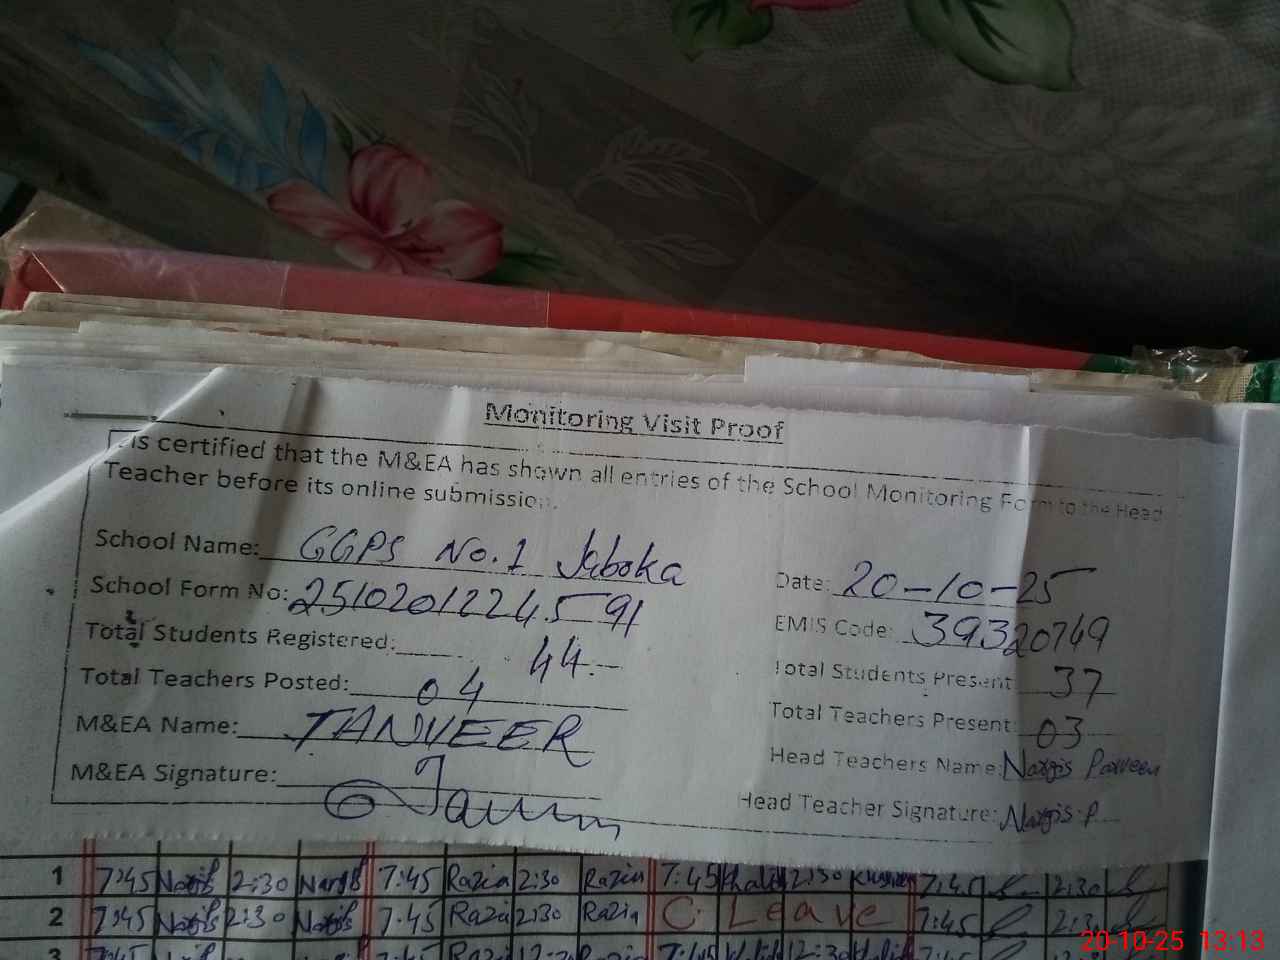 Monitoring Visit Proof
is certified that the M&EA has shown all entries of the School Monitoring Form to the Head
Teacher before its online submission.
School Name: GGPS No.1 Jaboka
Date: 20-10-25
School Form No: 2510201224591
EMIS Code: 39320749
Total Students Registered: 44
Total Students Present 37
Total Teachers Posted: 04
Total Teachers Present: 03
M&EA Name: TANVEER
Head Teachers Name: Nargis Parveen
M&EA Signature:
Head Teacher Signature: Nargis P
1 7:45 Nargis 2:30 Nargis 7:45 Razia 2:30 Razia 7:45 Khalida 2:30 7:45 2:30
2 7:45 Nargis 2:30 Nargis 7:45 Razia 2:30 Razia C. Leave 7:45 2:30
3 7:45 7:45 Razia 7:45
20-10-25 13:13